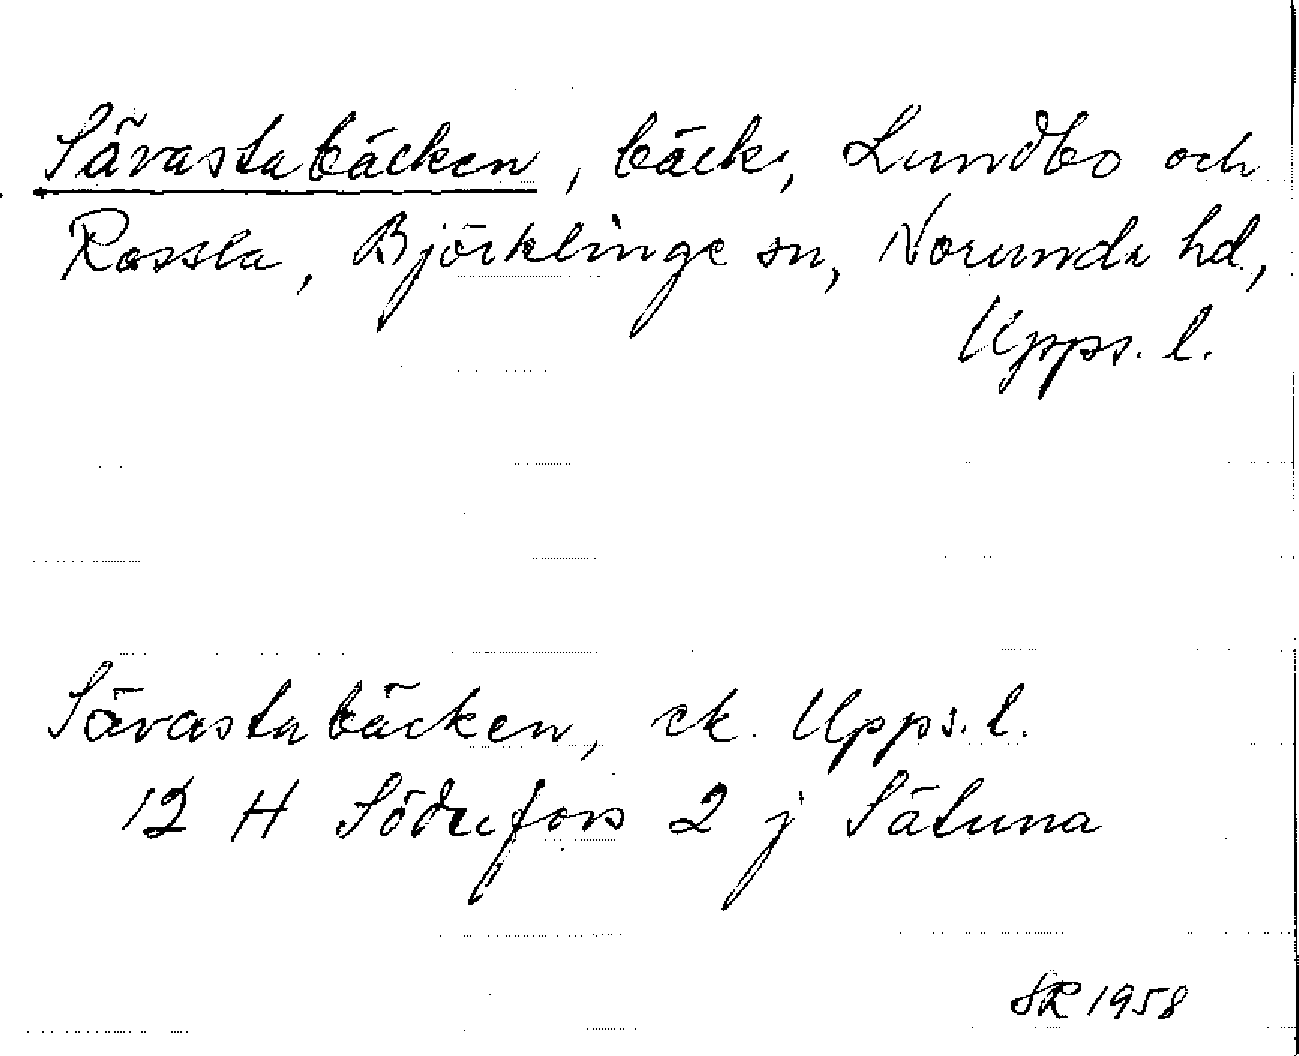 Sävastabäcken, bäck, Lundbo och
Rossla, Björklinge sn, Norunda hd,
Upps. l.
Sävastabäcken, ek. Upps. l.
12 H Söderfors 2 j Sätuna
SR 1958